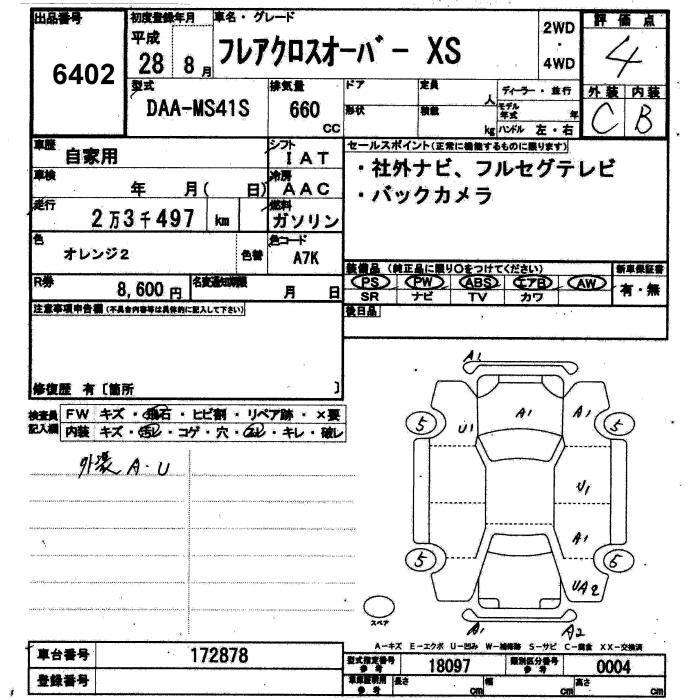 出品番号
6402
初度登録年月
平成
28 8月
車名・グレード
フレアクロスオーバー XS
2WD
・
4WD
評価点
4
外装 内装
C B
型式
DAA-MS41S
排気量
660
cc
ドア
定員
人
形状
積載
kg
ディーラー・並行
モデル年式 年
ハンドル 左・右
車歴
自家用
シフト
IAT
車検
年 月( 日)
冷房
AAC
走行
2万3千497 km
燃料
ガソリン
色
オレンジ2
色替
色コード
A7K
セールスポイント(正常に機能するものに限ります)
・社外ナビ、フルセグテレビ
・バックカメラ
R券
8,600 円
名変通知期限
月 日
装備品 (純正品に限り○をつけてください)
新車保証書
PS PW ABS エアB AW
SR ナビ TV カワ
有・無
後日品
注意事項申告欄(不具合内容等は具体的に記入して下さい)
修復歴 有〔箇所 〕
検査員
記入欄
FW キズ・飛石・ヒビ割・リペア跡・×要
内装 キズ・汚レ・コゲ・穴・スレ・キレ・破レ
外装 A・U
A1
5
U1
A1
A1
5
U1
A1
5
5
UA2
スペア
A1
A2
A-キズ E-エクボ U-凹み W-補修跡 S-サビ C-腐食 XX-交換済
車台番号
172878
登録番号
型式指定番号
参考
18097
類別区分番号
参考
0004
車庫証明用
参考
長さ cm
幅 cm
高さ cm